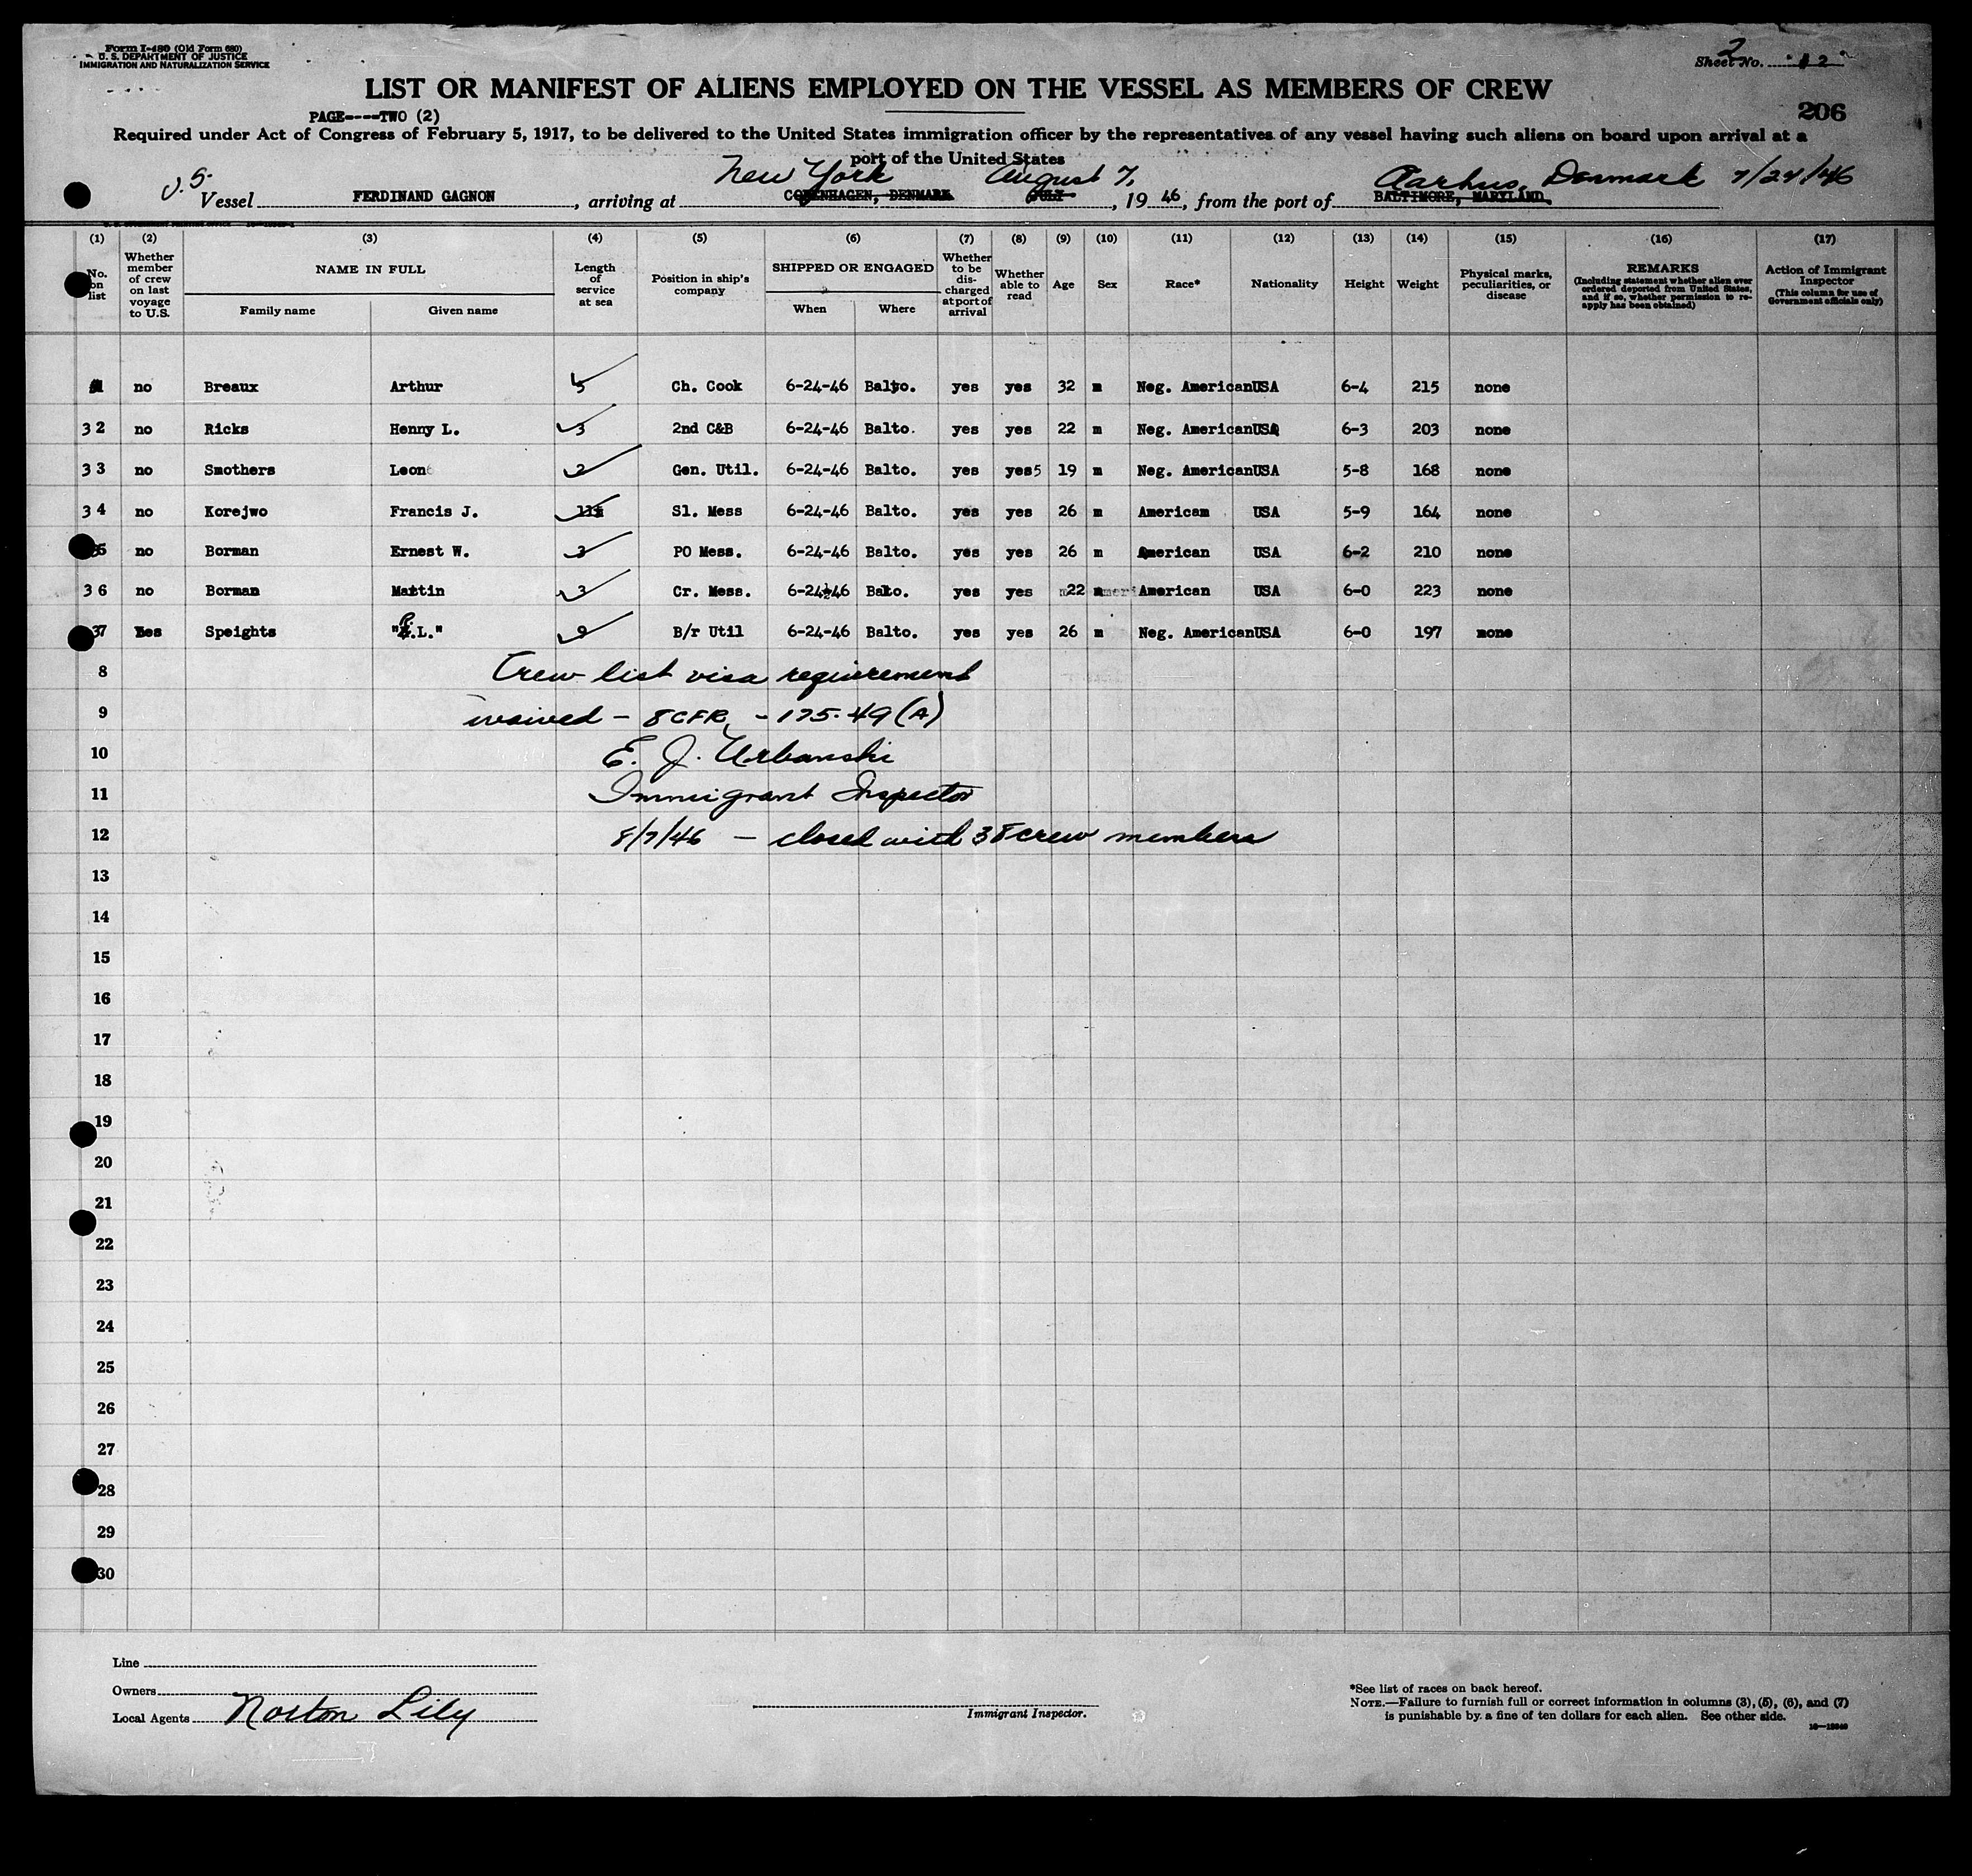 Form I-480 (Old Form 680)
U. S. DEPARTMENT OF JUSTICE
IMMIGRATION AND NATURALIZATION SERVICE
Sheet No. 2 12
LIST OR MANIFEST OF ALIENS EMPLOYED ON THE VESSEL AS MEMBERS OF CREW
206
PAGE----TWO (2)
Required under Act of Congress of February 5, 1917, to be delivered to the United States immigration officer by the representatives of any vessel having such aliens on board upon arrival at a
port of the United States
New York August 7, Aarhus, Denmark 7/24/46
Vessel FERDINAND GAGNON, arriving at COPENHAGEN, DENMARK JULY, 19 46, from the port of BALTIMORE, MARYLAND.
(1) (2) (3) (4) (5) (6) (7) (8) (9) (10) (11) (12) (13) (14) (15) (16) (17)
No. on list
Whether member of crew on last voyage to U.S.
NAME IN FULL
Family name Given name
Length of service at sea
Position in ship's company
SHIPPED OR ENGAGED
When Where
Whether to be discharged at port of arrival
Whether able to read
Age Sex Race* Nationality Height Weight
Physical marks, peculiarities, or disease
REMARKS
(Including statement whether alien ever ordered deported from United States, and if so, whether permission to re-apply has been obtained)
Action of Immigrant Inspector
(This column for use of Government officials only)
1 no Breaux Arthur 5 Ch. Cook 6-24-46 Balto. yes yes 32 m Neg. American USA 6-4 215 none
32 no Ricks Henny L. 3 2nd C&B 6-24-46 Balto. yes yes 22 m Neg. American USA 6-3 203 none
33 no Smothers Leon 2 Gen. Util. 6-24-46 Balto. yes yes 19 m Neg. American USA 5-8 168 none
34 no Korejwo Francis J. Sl. Mess 6-24-46 Balto. yes yes 26 m American USA 5-9 164 none
35 no Borman Ernest W. 3 PO Mess. 6-24-46 Balto. yes yes 26 m American USA 6-2 210 none
36 no Borman Martin 3 Cr. Mess. 6-24-46 Balto. yes yes 22 m American USA 6-0 223 none
37 Yes Speights "R.L." 9 B/r Util 6-24-46 Balto. yes yes 26 m Neg. American USA 6-0 197 none
8 Crew list visa requirement
9 waived - 8 CFR - 175.49 (A)
10 E. J. Urbanski
11 Immigrant Inspector
12 8/7/46 - closed with 38 crew members
13
14
15
16
17
18
19
20
21
22
23
24
25
26
27
28
29
30
Line
Owners
Local Agents Norton Lily
Immigrant Inspector.
*See list of races on back hereof.
NOTE.—Failure to furnish full or correct information in columns (3), (5), (6), and (7)
is punishable by a fine of ten dollars for each alien. See other side.